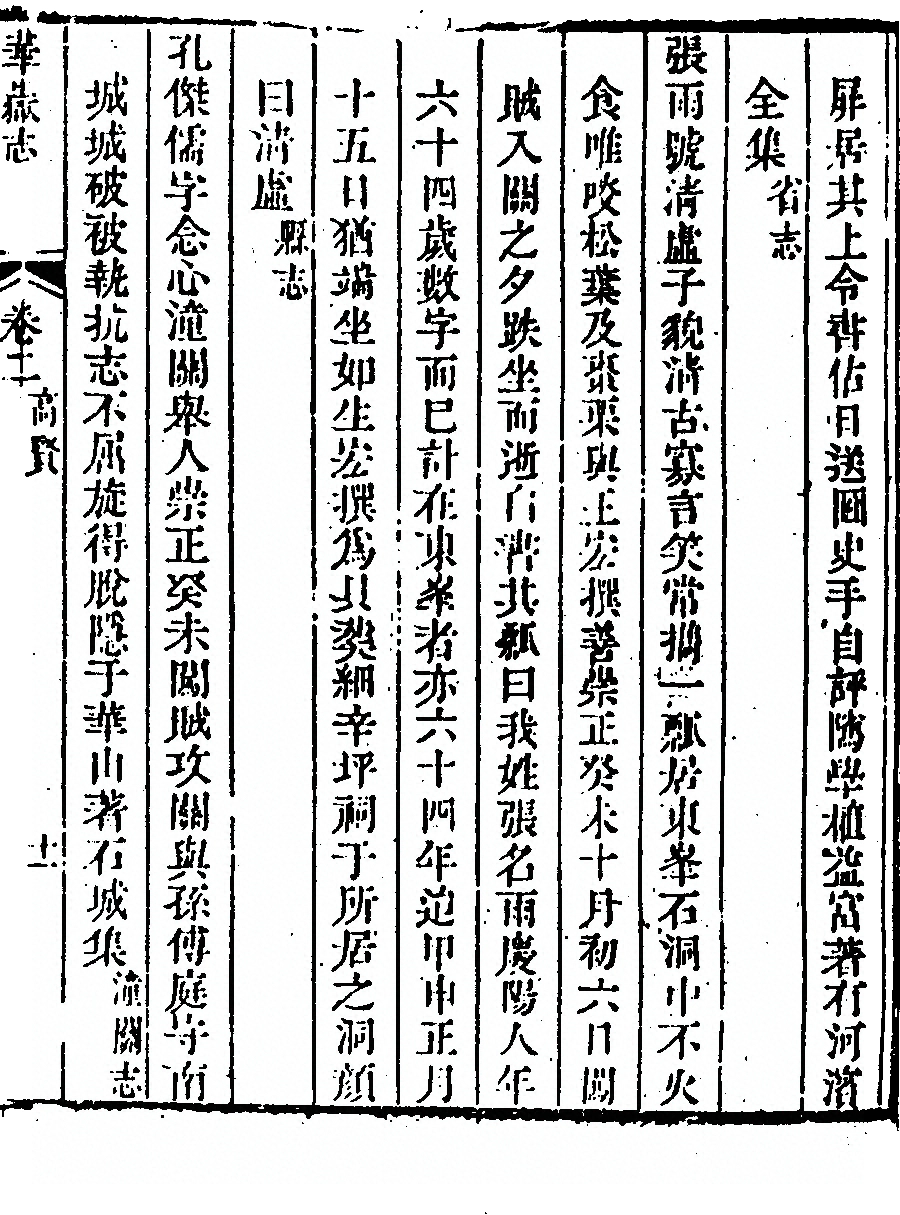 屏居其上令書估日送圖史手自評隲學植益富著有河濱
全集省志
張雨號清虛子貌清古寡言笑常攜一瓢居東峯石洞中不火
食唯咬松葉及棗栗與王宏撰善崇正癸未十月初六日闖
賊入關之夕趺坐而逝自書其瓢曰我姓張名雨慶陽人年
六十四歲數字而已計在東峯者亦六十四年迨甲申正月
十五日猶端坐如生宏撰為具葬細辛坪祠于所居之洞顏
曰清虛縣志
孔傑儒字念心潼關舉人崇正癸未闖賊攻關與孫傅庭守南
城城破被執抗志不屈旋得脫隱于華山著石城集潼關志
華嶽志
卷十二 高賢
十一